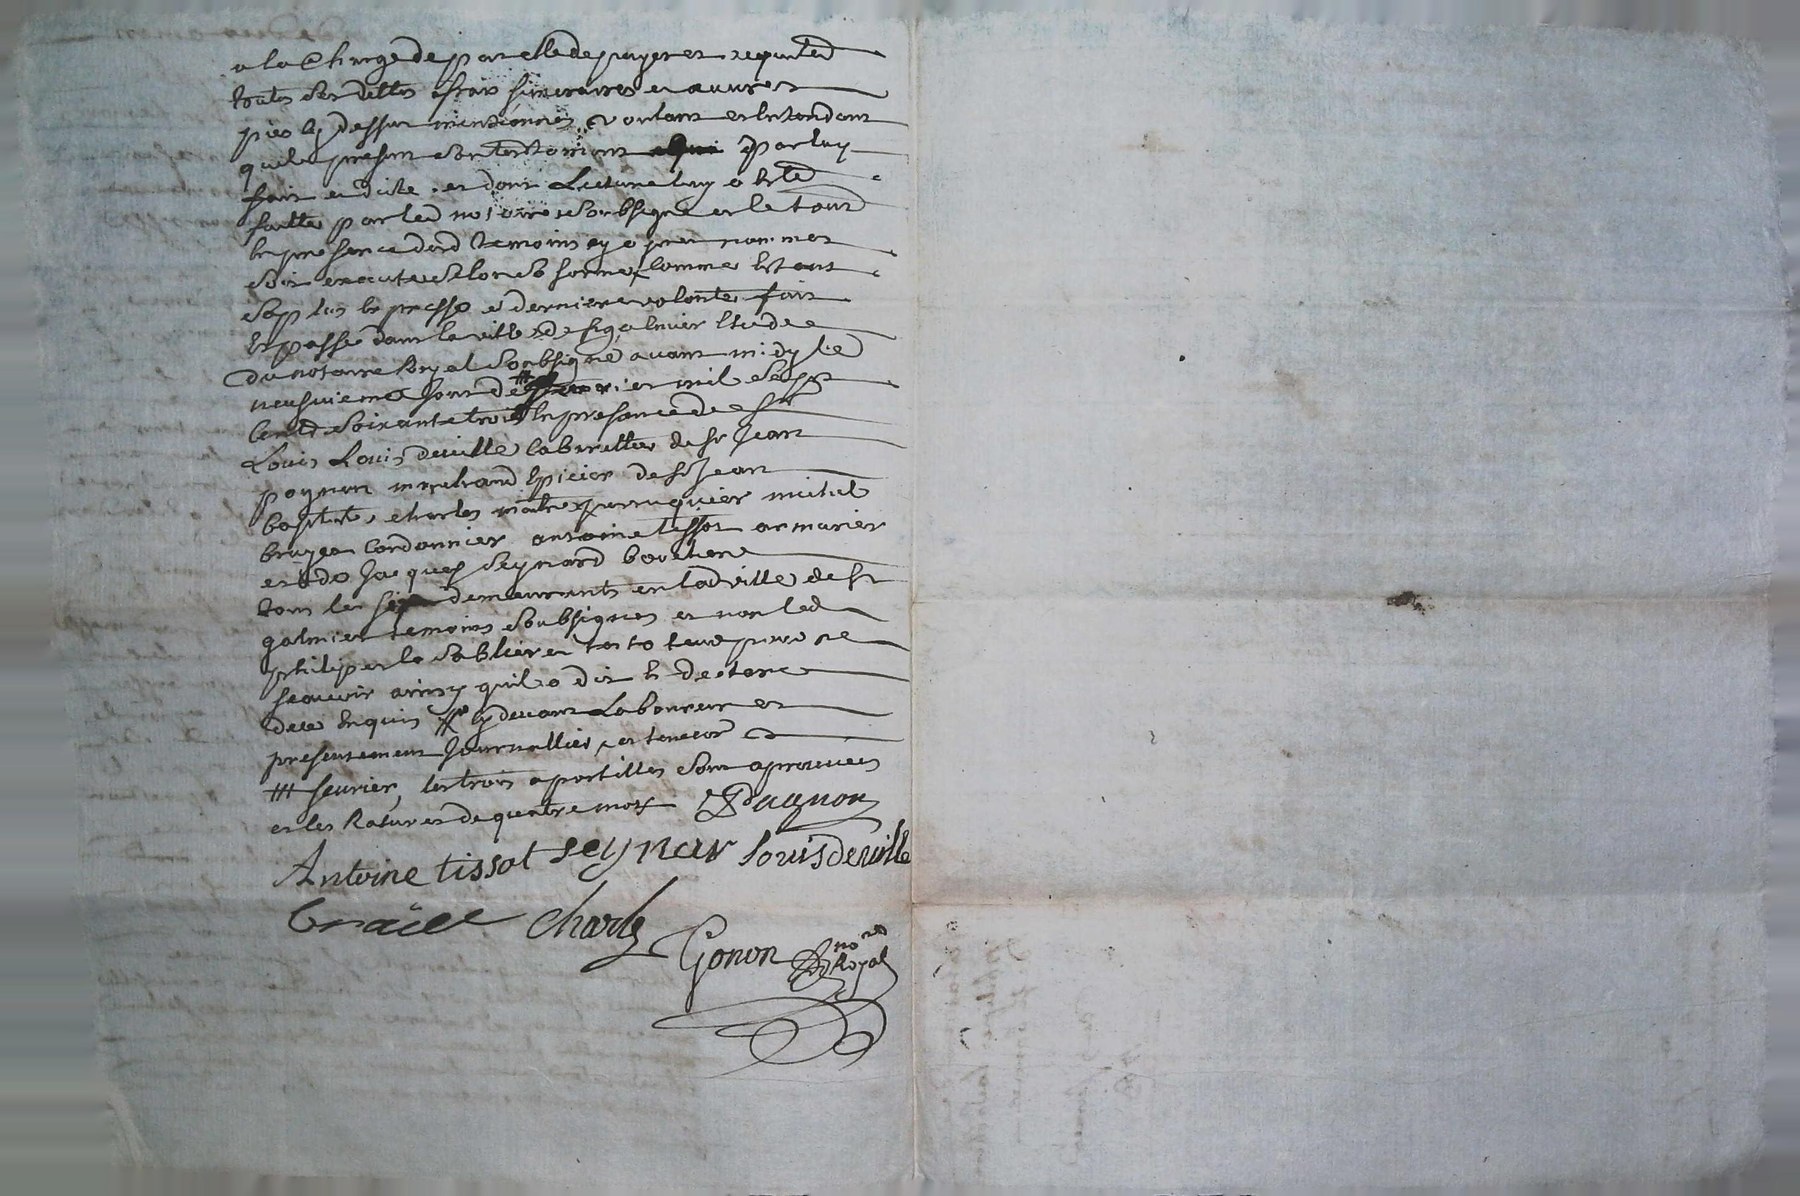 a la Charge de par elle de payer et acquiter
toutes ses dettes frais funeraires et œuvres
pies cy dessus mentionnés voulant et entendant
que le present son testament par luy
fait et dicté et dont Lecture luy a esté
faitte par led notaire soubsigné et le tout
en presence desd temoins cy apres nommes
soit executé selon sa forme comme Estant
sa plus expresse et derniere volonte fait
Et passé dans la ville de st galmier Etude
du notaire Royal soubsigné avant midy le
neufvieme jour de mil sept
Cent soixante trois En presence de sr
Louis Louis deville Cabarettier de sr Jean
pagnon marchand Epicier de sr Jean
baptiste charles maitre perruquier michel
bruyer Cordonnier antoine tissot armurier
et de Jacques seynard
tous les six demeurants en lad ville de st
galmier temoins soubsignés et non led
philiper la sabliere testateur pour ne
scavoir ainsy qu'il a dit et declaré
de ce Enquis cy devant Laboureur et
presentement Journallier et
fevrier, les trois apostilles sont aprouvees
et les Ratures de quatre mots Pagnon
Antoine tissot seynar Louis deville
Charle
Gonon nore
Royal